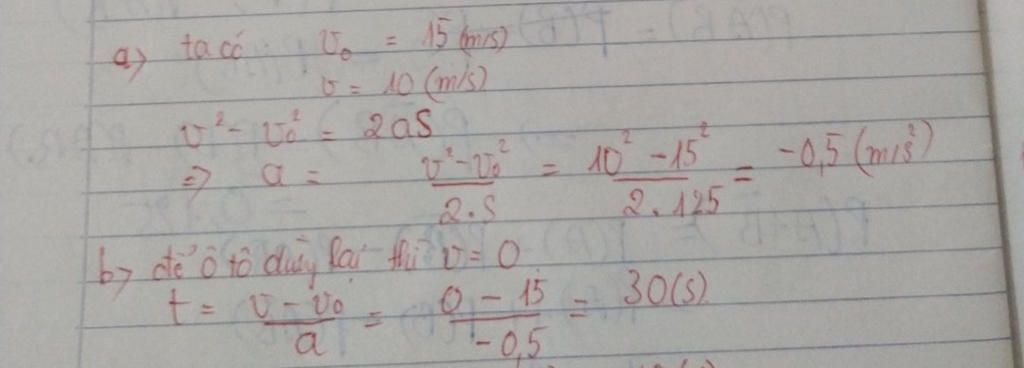 a) ta có v₀ = 15 (m/s)
v = 10 (m/s)
v² - v₀² = 2aS
=> a = (v² - v₀²)/(2.S) = (10² - 15²)/(2.125) = -0,5 (m/s²)
b) để ô tô dừng lại thì v = 0
t = (v - v₀)/a = (0 - 15)/(-0,5) = 30(s)